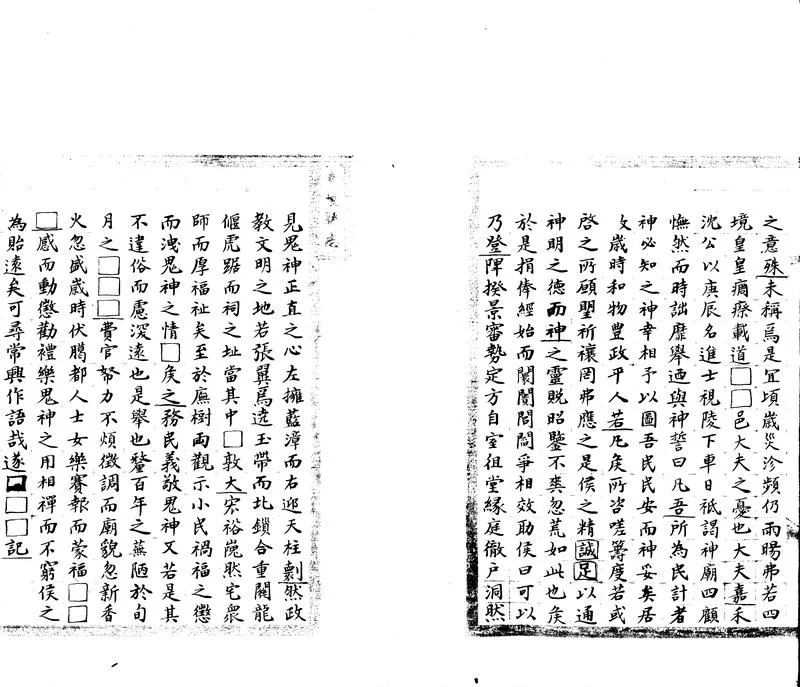 之意殊未稱焉是冝頃歲災沴頻仍雨暘弗若四
境皇皇癎瘵載道□□邑大夫之憂也大夫嘉禾
沈公以庚辰名進士視陵下車日祗謁神廟四顧
憮然而時詘靡舉迺與神誓曰凡吾所為民計者
神必知之神幸相予以圖吾民民安而神妥矣居
歲時和物豐政平人若凡矦所咨嗟籌度若或
啓之所願聖祈禳罔弗應之是侯之精誠足以通
神明之德而神之靈貺昭鑒不爽忽荒如此也矦
於是捐俸經始而闤闠閭閻爭相效助侯曰可以
乃登陴揆景審勢定方自室徂堂緣庭徹戶洞然
見鬼神正直之心左擁藍漳而右迎天柱劃然政
教文明之地若張翼焉遶玉帶而北鎖合重關龍
偃虎踞而祠之址當其中□敦大宏裕巍然宅衆
師而厚福祉矣至於廡樹兩觀示小民禍福之懲
而洩鬼神之情□矦之務民義敬鬼神又若是其
不違俗而慮深遠也是舉也釐百年之蕪陋於旬
月之□□□費官帑力不煩徵調而廟貌忽新香
火忽盛歲時伏臘都人士女樂賽報而蒙福□□
□感而動懲勸禮樂鬼神之用相禪而不窮侯之
為貽遠矣可尋常興作語哉遂□□□記